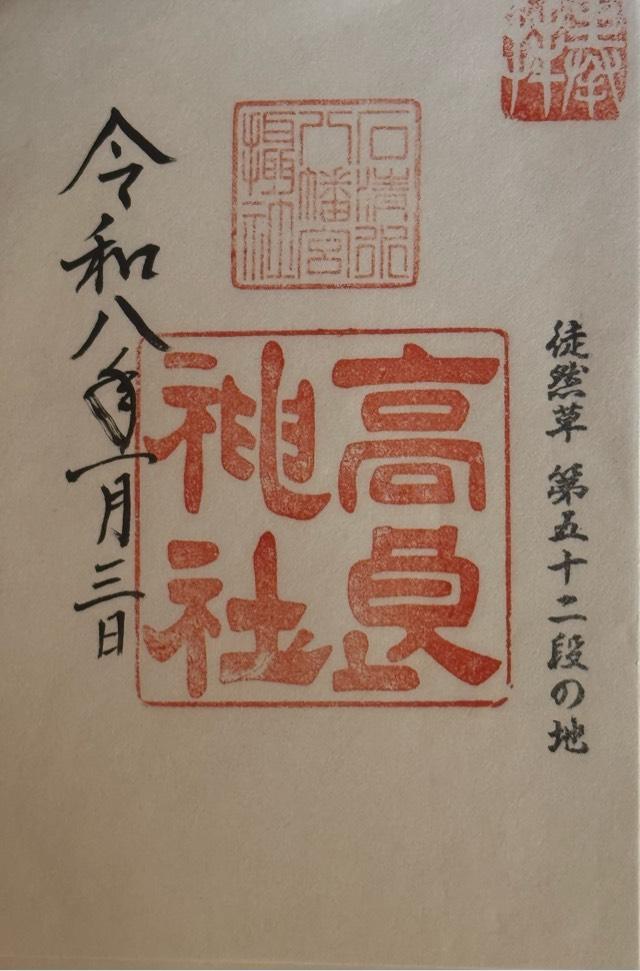 奉拝
徒然草 第五十二段の地
石清水
八幡宮
攝社
高良
神社
令和八年一月三日